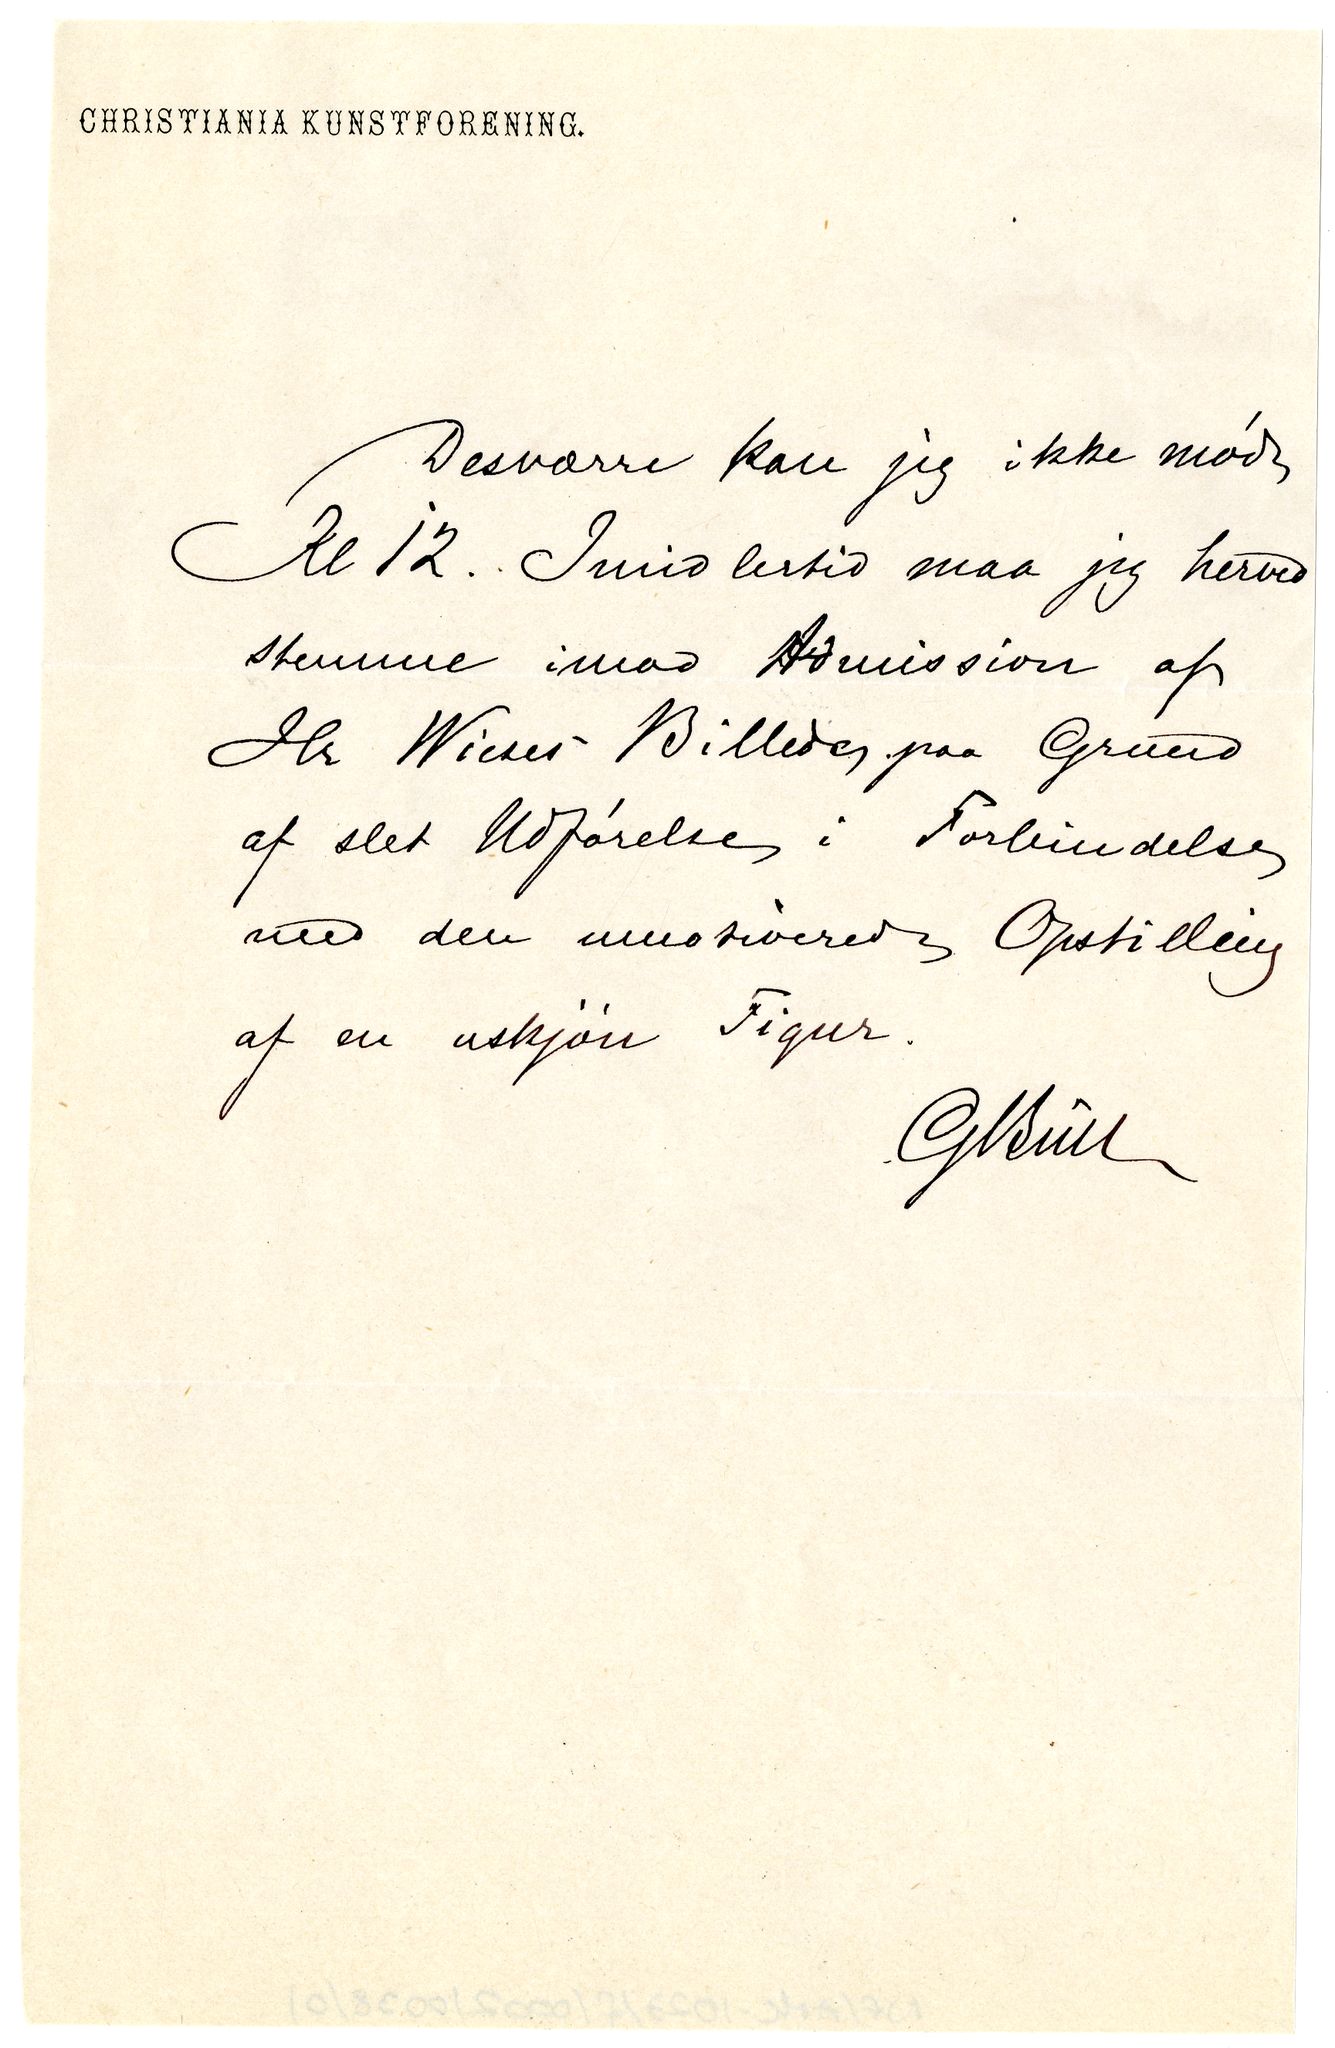 CHRISTIANIA KUNSTFORENING.
Desværre kan jeg ikke møde
Kl 12. Imidlertid maa jeg herved
stemme imod Admission af
Hr Wieses Billede, paa Grund
af slet Udførelse i Forbindelse
med den umotiverede Opstilling
af en uskjøn Figur.
GBull